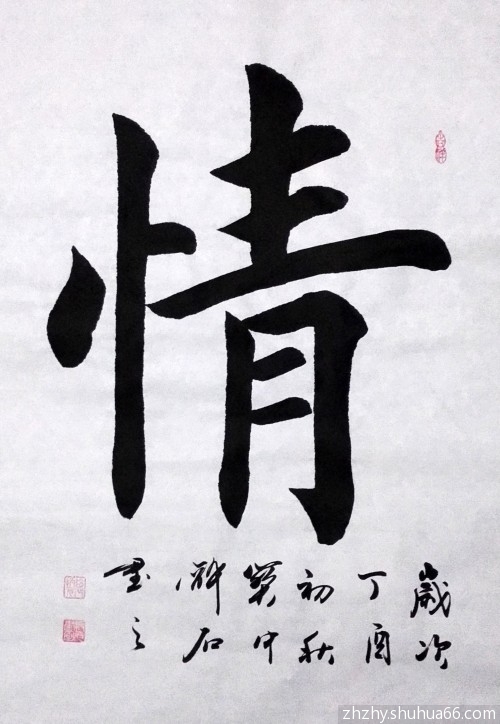 情
歲次
丁酉
初秋
中
石
書之
zhzhy.shuhua66.com